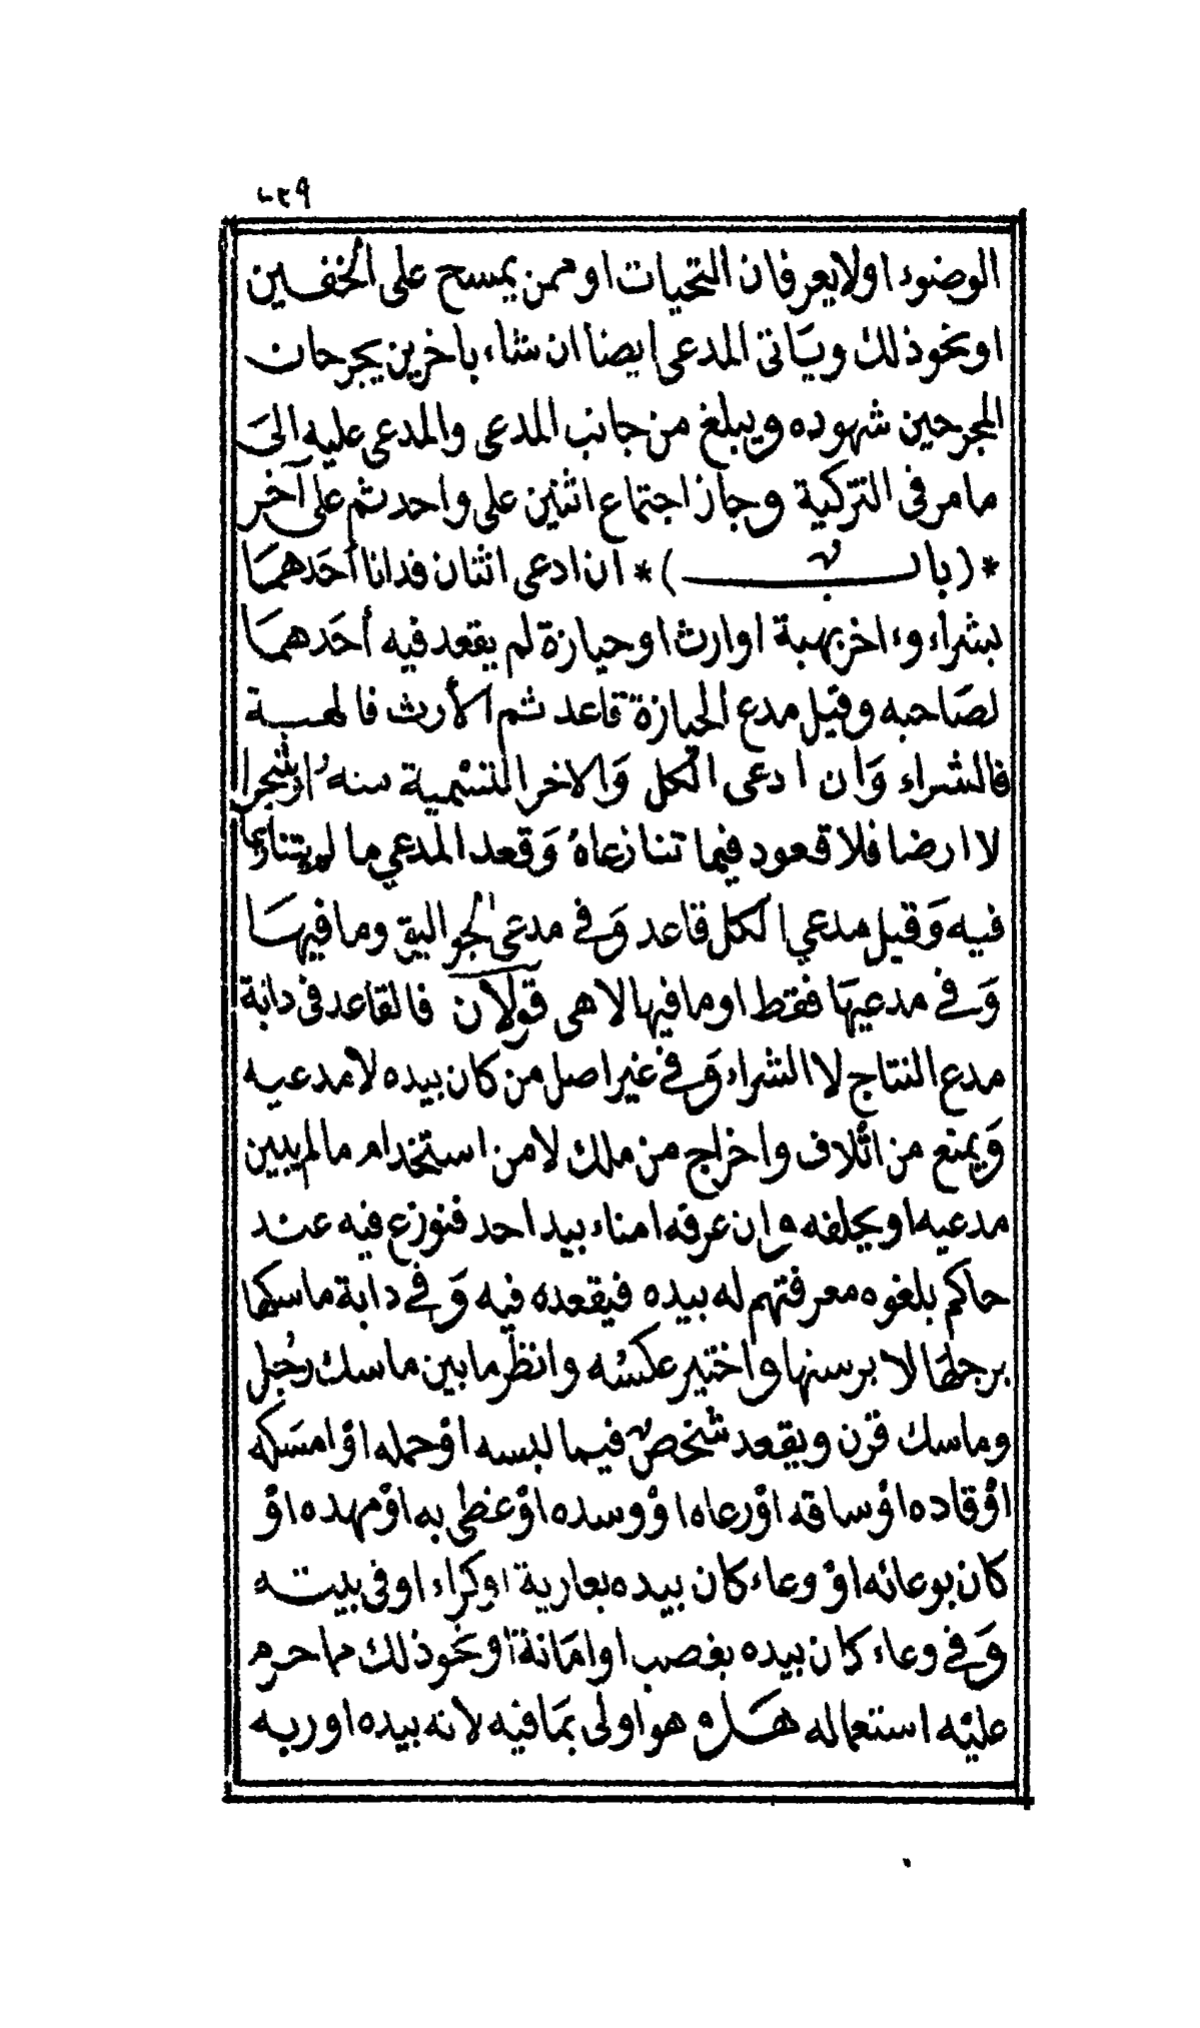 ٤٢٩
الوضوء اولا يعرفان التحيات او ممن يمسح على الخفين
او نحو ذلك ويأتى المدعى ايضا ان شاء بآخرين يجرحان
المجرحين شهوده ويبلغ من جانب المدعى والمدعى عليه الى
ما مر فى التزكية وجاز اجتماع اثنين على واحد ثم على آخر
*(باب)* ان ادعى اثنان فدانا أحدهما
بشراء وءاخر بهبة او ارث او حيازة لم يقعد فيه أحدهما
لصاحبه وقيل مدع الحيازة قاعد ثم الأرث فالهبة
فالشراء وان ادعى الكل والاخر التسمية منه او شجرا
لا ارضا فلا قعود فيما تنازعاه وقعد المدعي ما لم يتنازعا
فيه وقيل مدعي الكل قاعد وفى مدعى الجواليق وما فيها
وفى مدعيها فقط او ما فيها لا هى قولان فالقاعد فى دابة
مدع النتاج لا الشراء وفى غير اصل من كان بيده لا مدعيه
ويمنع من اتلاف واخراج من ملك لا من استخدام ما لم يبين
مدعيه او يحلفه وان عرفه امناء بيد احد فنوزع فيه عند
حاكم بلغوه معرفتهم له بيده فيقعده فيه وفى دابة ماسكها
برجلها لا برسنها واختير عكسه وانظر ما بين ماسك رجل
وماسك قرن ويقعد شخص فيما لبسه او حمله او امسكه
او قاده او ساقه او رعاه او وسده او غطى به او مهده او
كان بوعائه او وعاء كان بيده بعارية او كراء او فى بيته
وفى وعاء كان بيده بغصب او امانة او نحو ذلك مما حرم
عليه استعماله هل هو اولى بما فيه لانه بيده او ربه